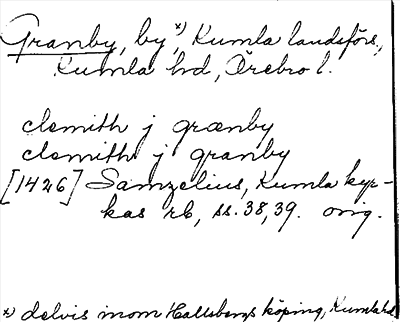 Granby, by x), Kumla landsförs.,
Kumla hd, Örebro l.
clemith j grænby
clemith j granby
[1426] Samzelius, Kumla kyr-
kas rb, ss. 38, 39. orig.
x) delvis inom Hallsbergs köping, Kumla hd